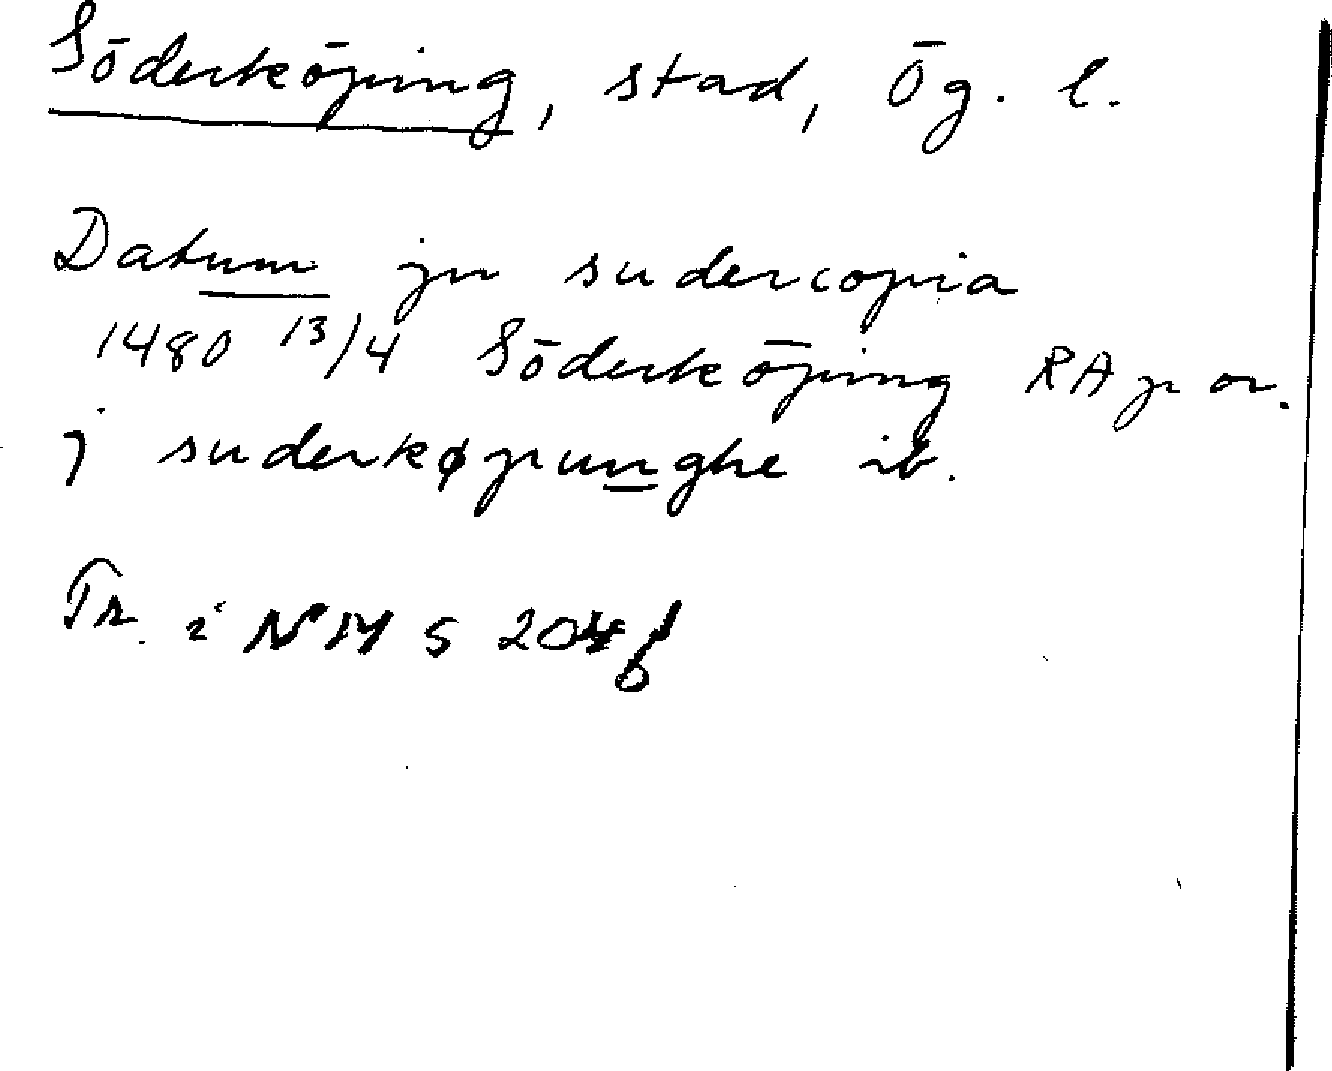 Söderköping, stad, Ög. l.
Datum jn sudercopia
1480 13/4 Söderköping RA p or.
j suderkøpunghe ib.
Tr. i NM s 204 f